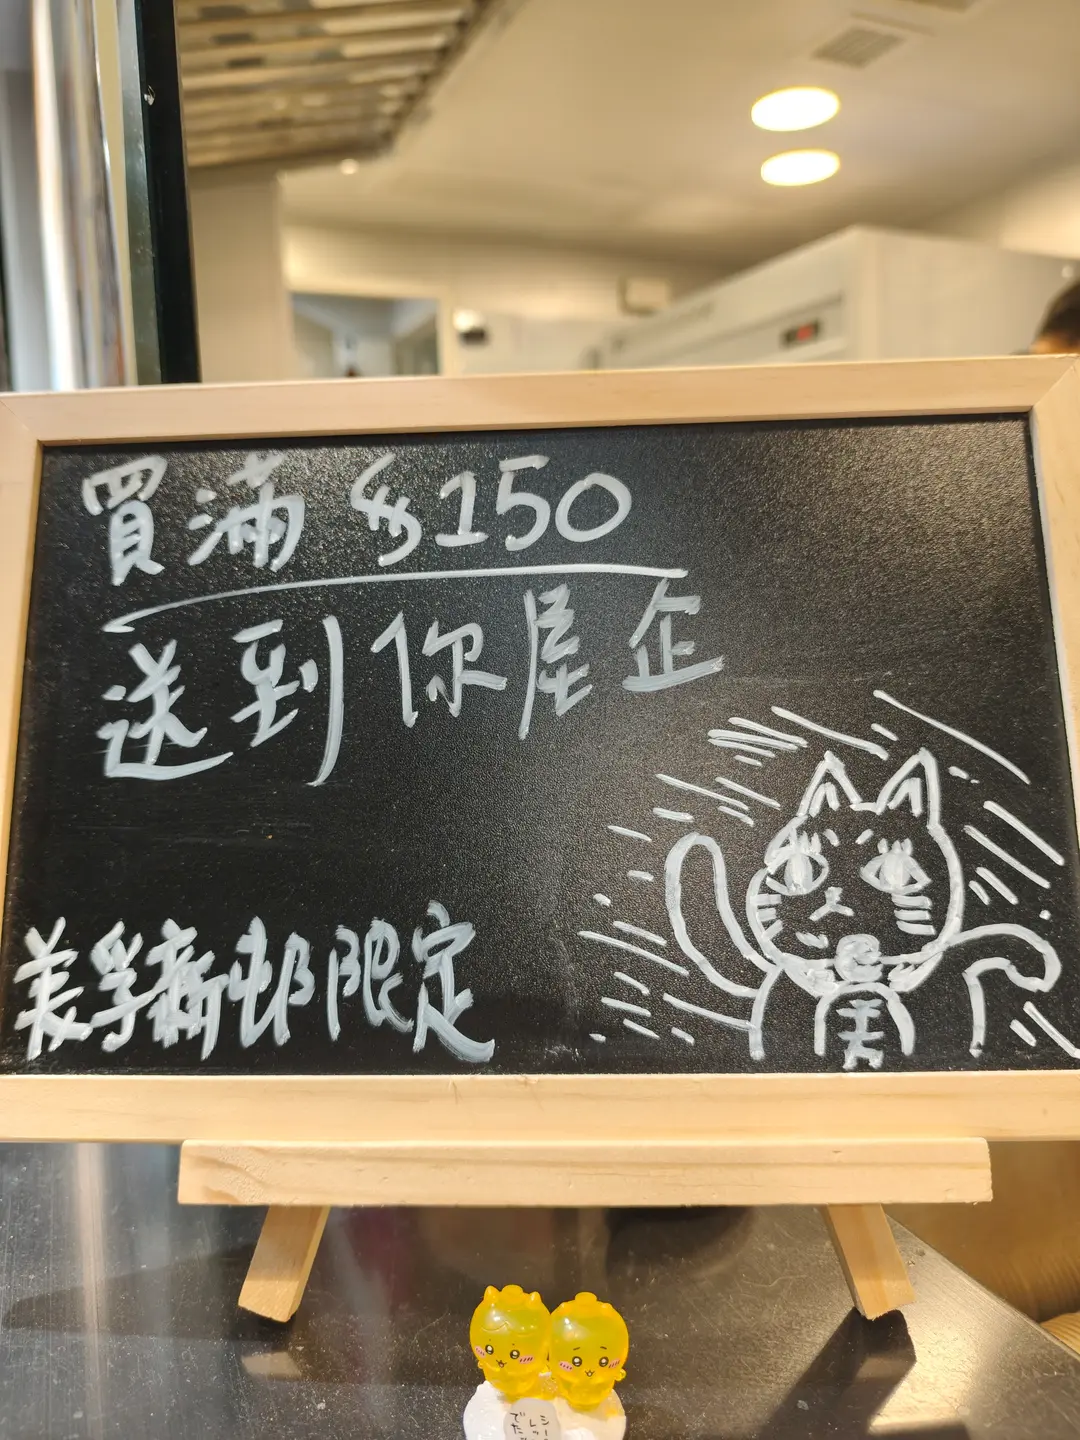 買滿 $150
送到你屋企
美孚新邨限定
美
シー
レッ
でた